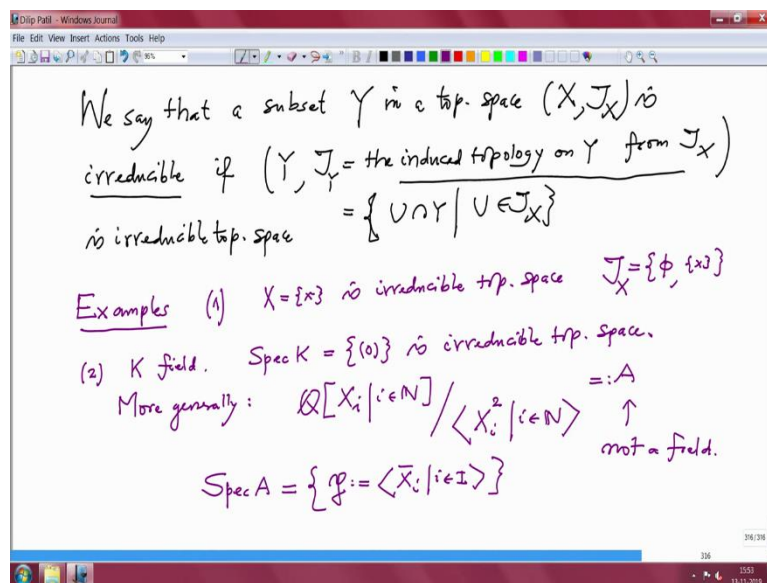 Dilip Patil - Windows Journal
File Edit View Insert Actions Tools Help
We say that a subset Y in a top. space (X, J_X) is
irreducible if (Y, J_Y = the induced topology on Y from J_X)
= { U∩Y | U ∈ J_X }
is irreducible top. space
Examples (1) X = {x} is irreducible top. space J_X = {ϕ, {x}}
(2) K field. Spec K = {(0)} is irreducible top. space.
More generally: Q[X_i | i ∈ N] / <X_i^2 | i ∈ N> =: A
↑
not a field.
Spec A = { 𝔭 := <X̄_i | i ∈ I> }
316/316
316
15:53
13-11-2019